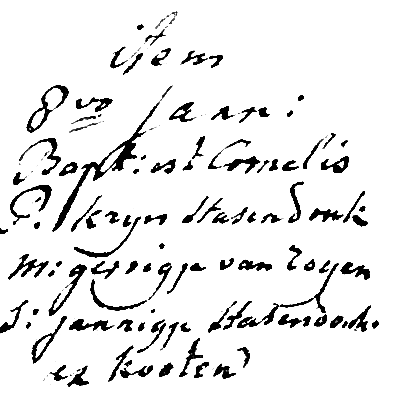 item
8vo Jann:
Bapt: est Cornelis
P. kryn Hasendonk
M: gerrigje van Zoyen
S: jannigje Hasendonk.
ex kooten